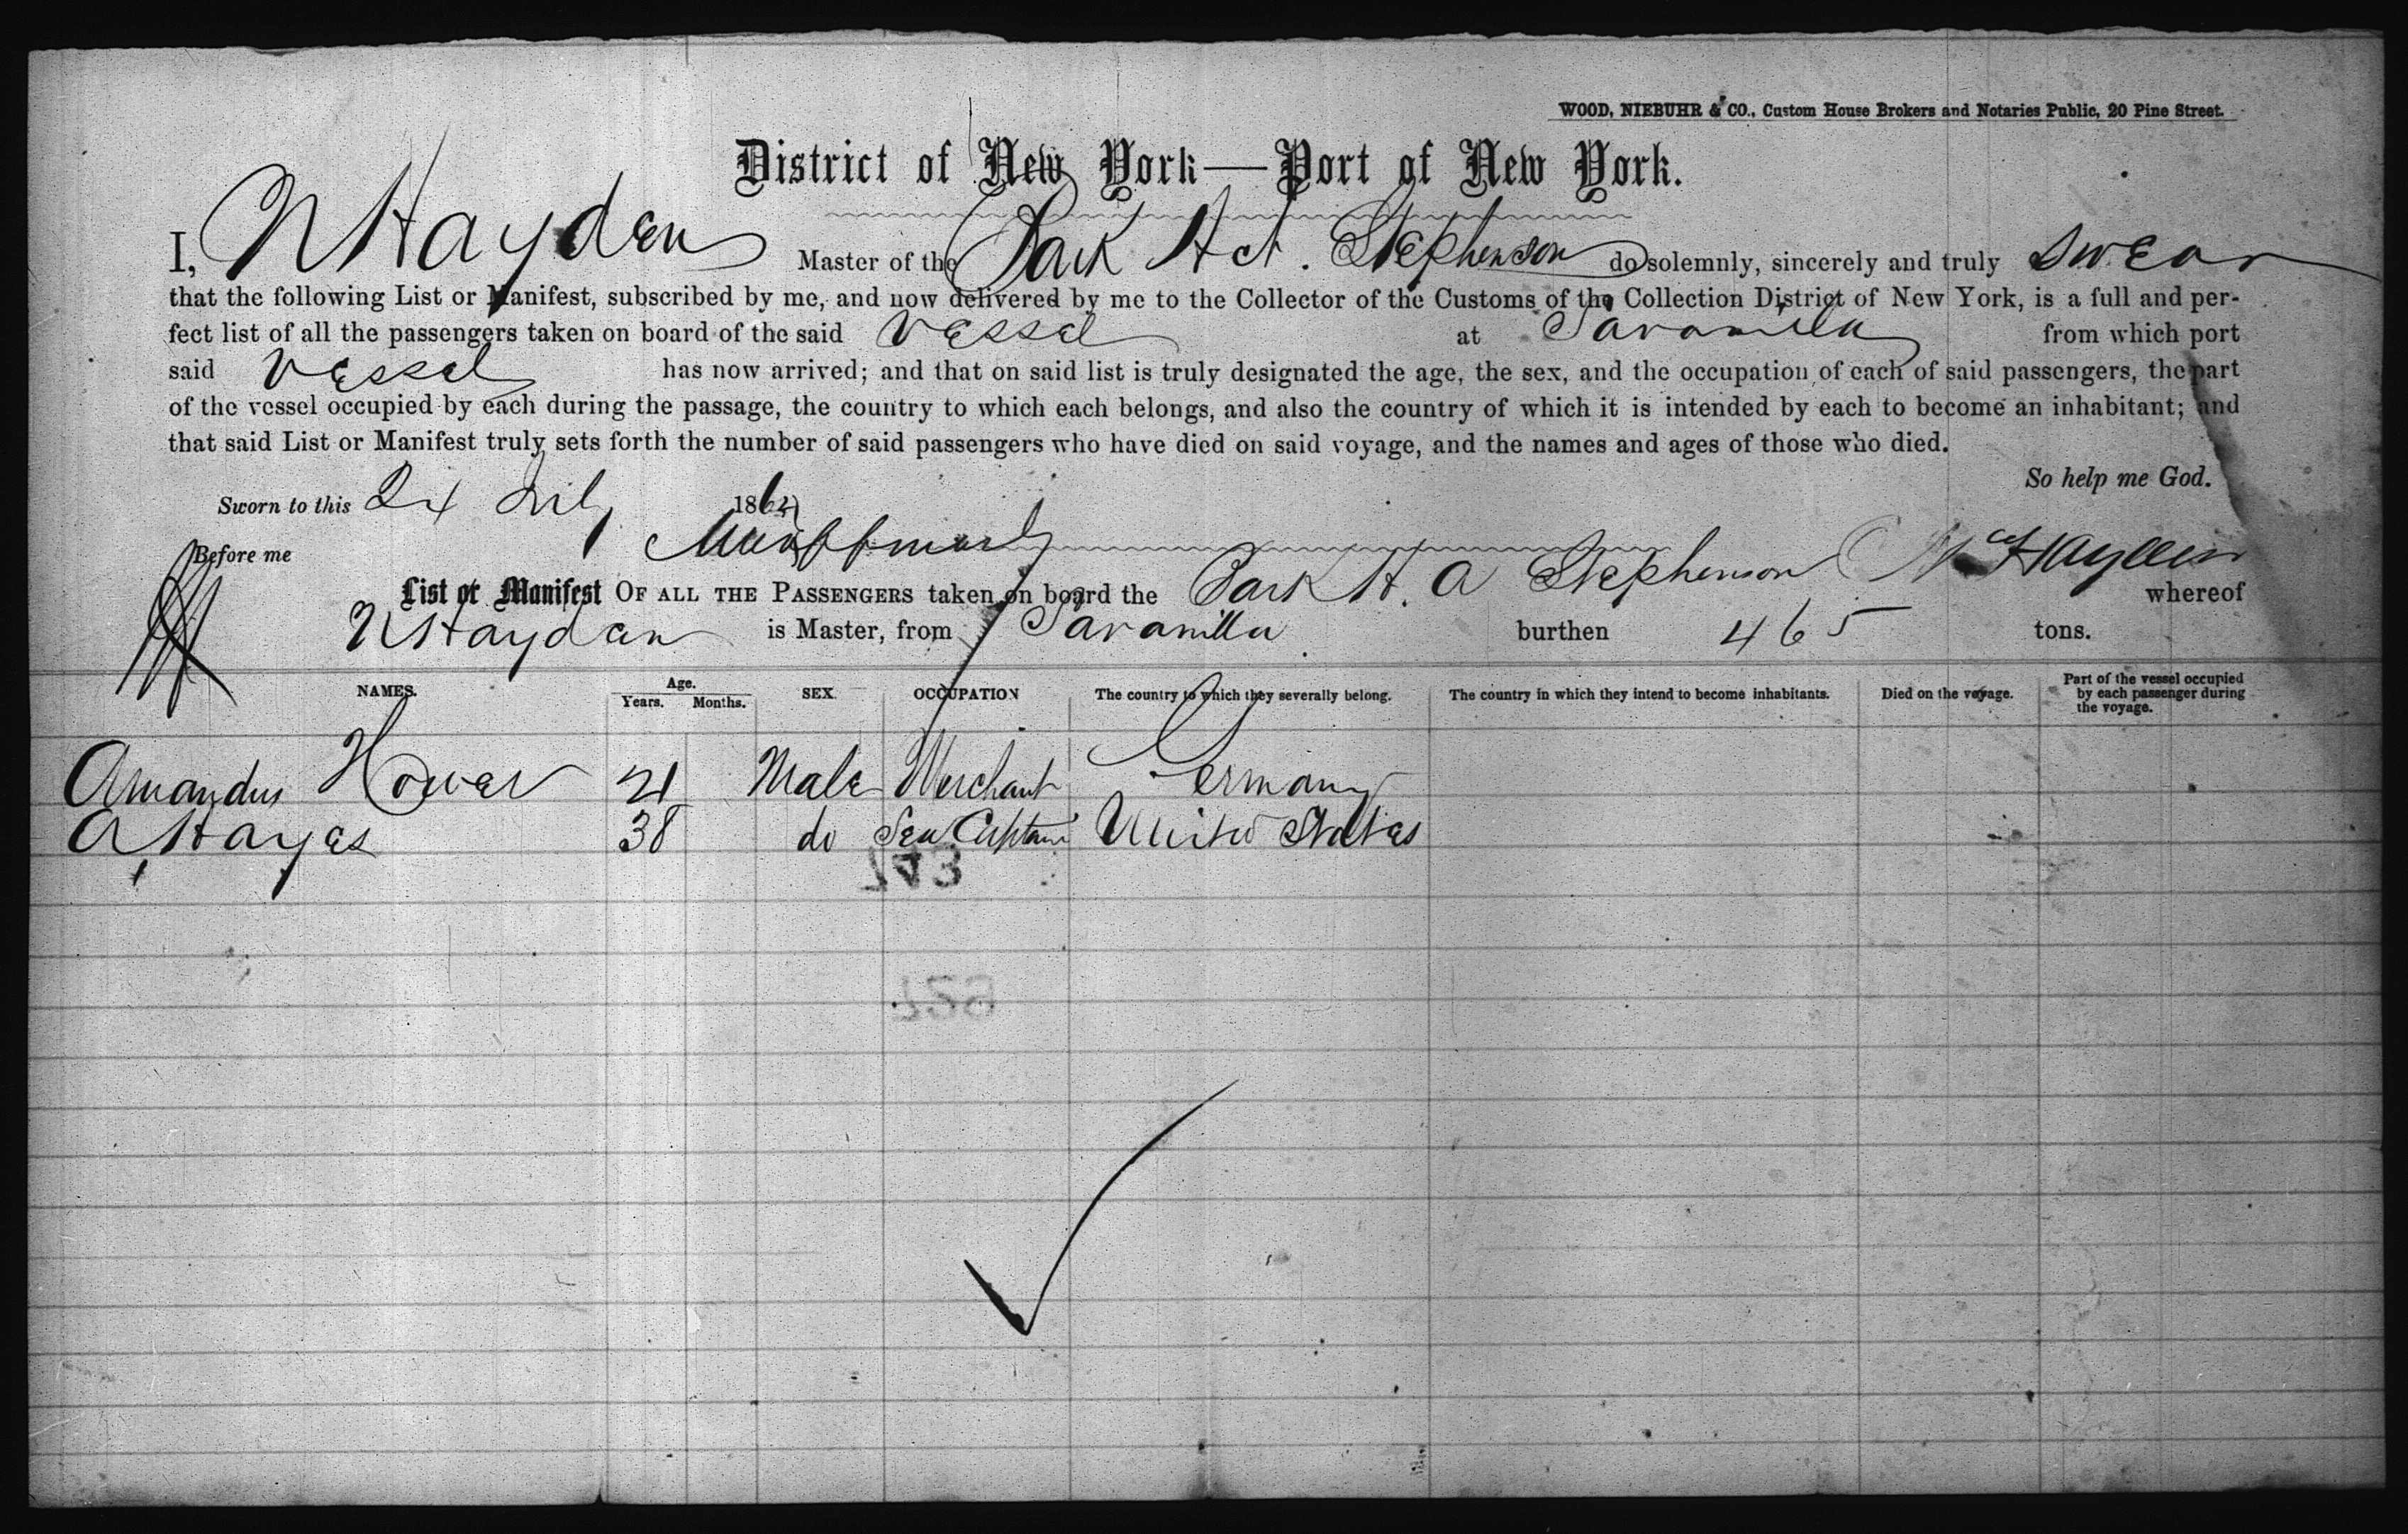 WOOD, NIEBUHR & CO., Custom House Brokers and Notaries Public, 20 Pine Street.
District of New York—Port of New York.
I, N Hayden Master of the Bark H A. Stephenson do solemnly, sincerely and truly swear
that the following List or Manifest, subscribed by me, and now delivered by me to the Collector of the Customs of the Collection District of New York, is a full and per-
fect list of all the passengers taken on board of the said vessel at Savanilla from which port
said vessel has now arrived; and that on said list is truly designated the age, the sex, and the occupation of each of said passengers, the part
of the vessel occupied by each during the passage, the country to which each belongs, and also the country of which it is intended by each to become an inhabitant; and
that said List or Manifest truly sets forth the number of said passengers who have died on said voyage, and the names and ages of those who died.
So help me God.
Sworn to this 24 July 1862
Before me
List or Manifest OF ALL THE PASSENGERS taken on board the Bark H. A Stephenson whereof
N Hayden is Master, from Savanilla burthen 465 tons.
NAMES. Age. Years. Months. SEX. OCCUPATION The country to which they severally belong. The country in which they intend to become inhabitants. Died on the voyage. Part of the vessel occupied by each passenger during the voyage.
Amandus Hower 21 Male Merchant Germany
A Hayes 38 do Sea Captain United States